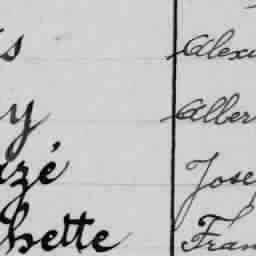 is Alexi
y Alber
uzé Jose
hette Fran